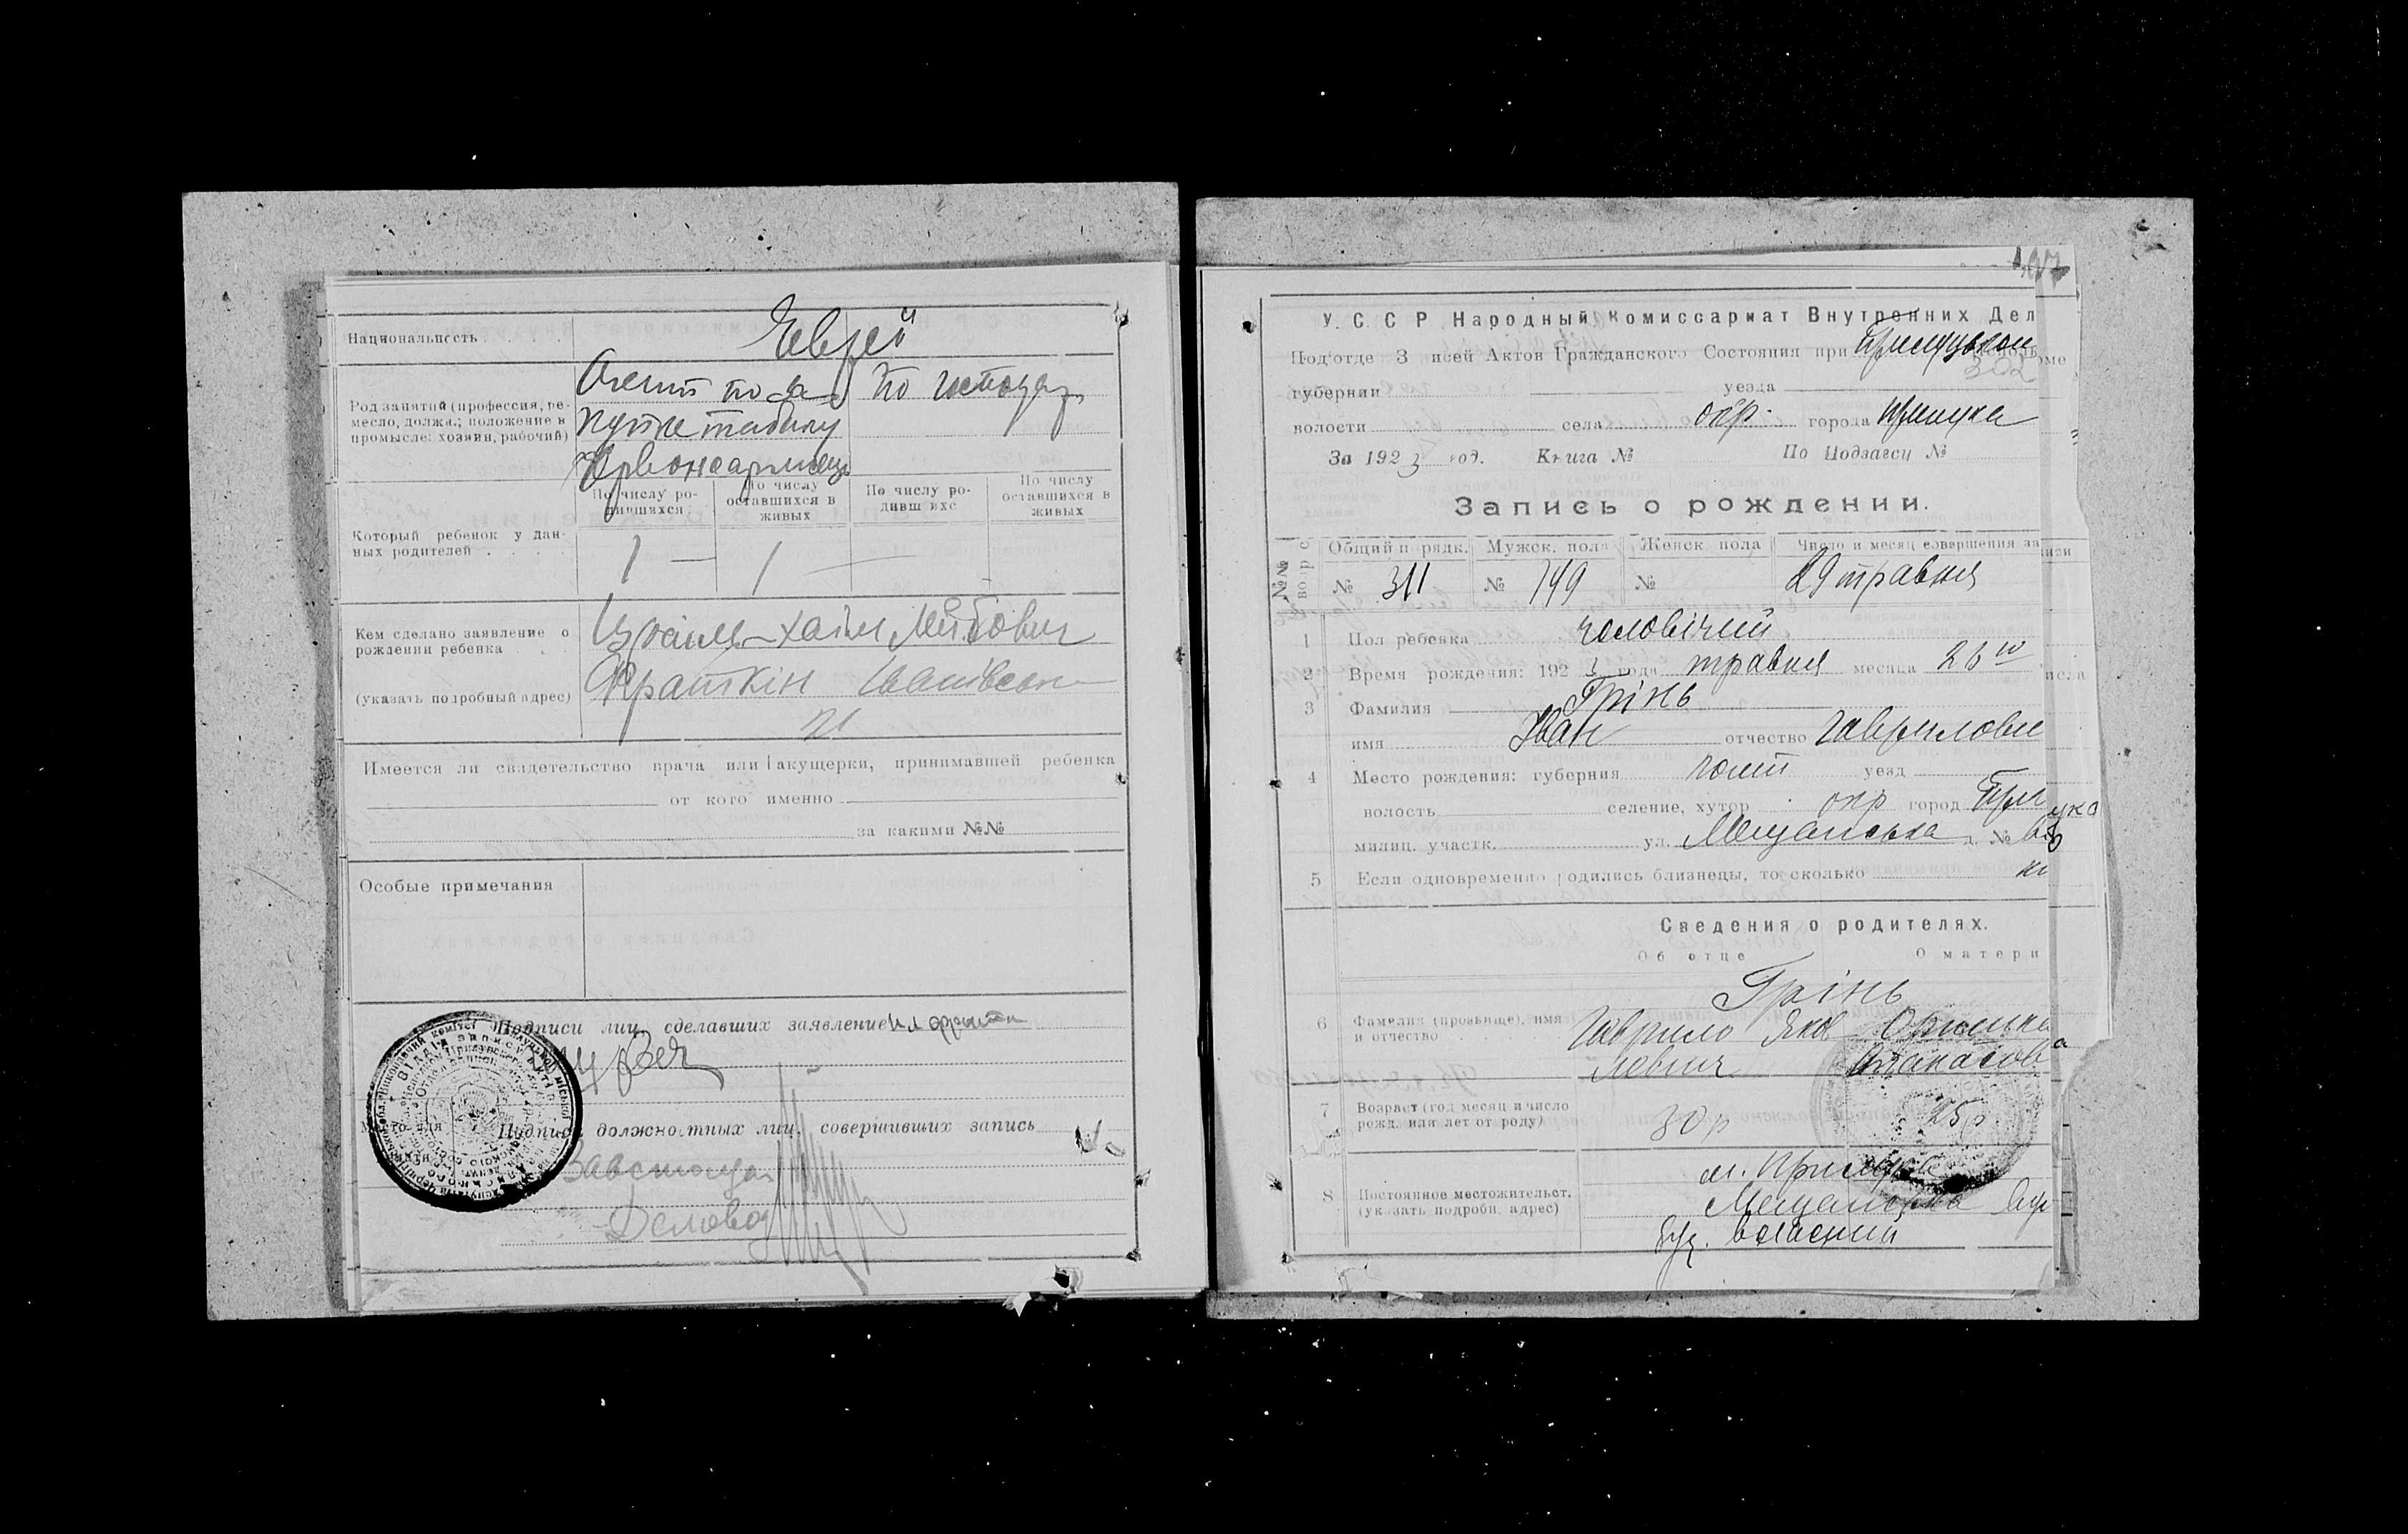 Национальность
Еврей
Род занятий (профессия, ре-
месло, должн.; положение в
промысле: хозяин, рабочий)
Агент по за
по господар
купке табаку
Червоноармеец
Который ребенок у дан-
ных родителей
По числу ро-
дившихся
По числу
оставшихся в
живых
По числу ро-
дивш ихс
По числу
оставшихся в
живых
1 — 1 —
Кем сделано заявление о
рождении ребенка
(указать подробный адрес)
Ізраїль-Хаїм Лейбович
Фраткін Іванівська
21
Имеется ли свидетельство врача или акушерки, принимавшей ребенка
от кого именно
за какими №№
Особые примечания
Подписи лиц, сделавших заявление
Подписи должностных лиц, совершивших запись
Завстолом
Деловод
197
У. С. С Р Народный Комиссариат Внутренних Дел
Подотде З исей Актов Гражданского Состояния при Прилуцьком
302
губернии уезда
волости села окр. города Прилука
За 1923 год. Книга № По Подзагсу №
Запись о рождении.
№№
вопрс
Общий п рядк. Мужск. пола Женск. пола Число и месяц совершения записи
№ 311 № 149 № 29 травня
1 Пол ребенка чоловічий
2 Время рождения: 1923 года травня месяца 26го числа
3 Фамилия Грінь
имя Іван отчество Гаврилови
4 Место рождения: губерния Полт уезд
волость селение, хутор окр город Прилука
милиц. участк. ул. Мещанська д. №
5 Если одновременно родились близнецы, то сколько
Сведения о родителях.
Об отце О матери
Грінь
6 Фамилия (прозвище), имя
и отчество
Гаврило Яков Оришка
левич Опанасова
7 Возраст (год месяц и число
рожд. или лет от роду)
30 р 25 р.
8 Постоянное местожительст.
(указать подробн. адрес)
м. Прилука
Мещанська вул
буд. власний